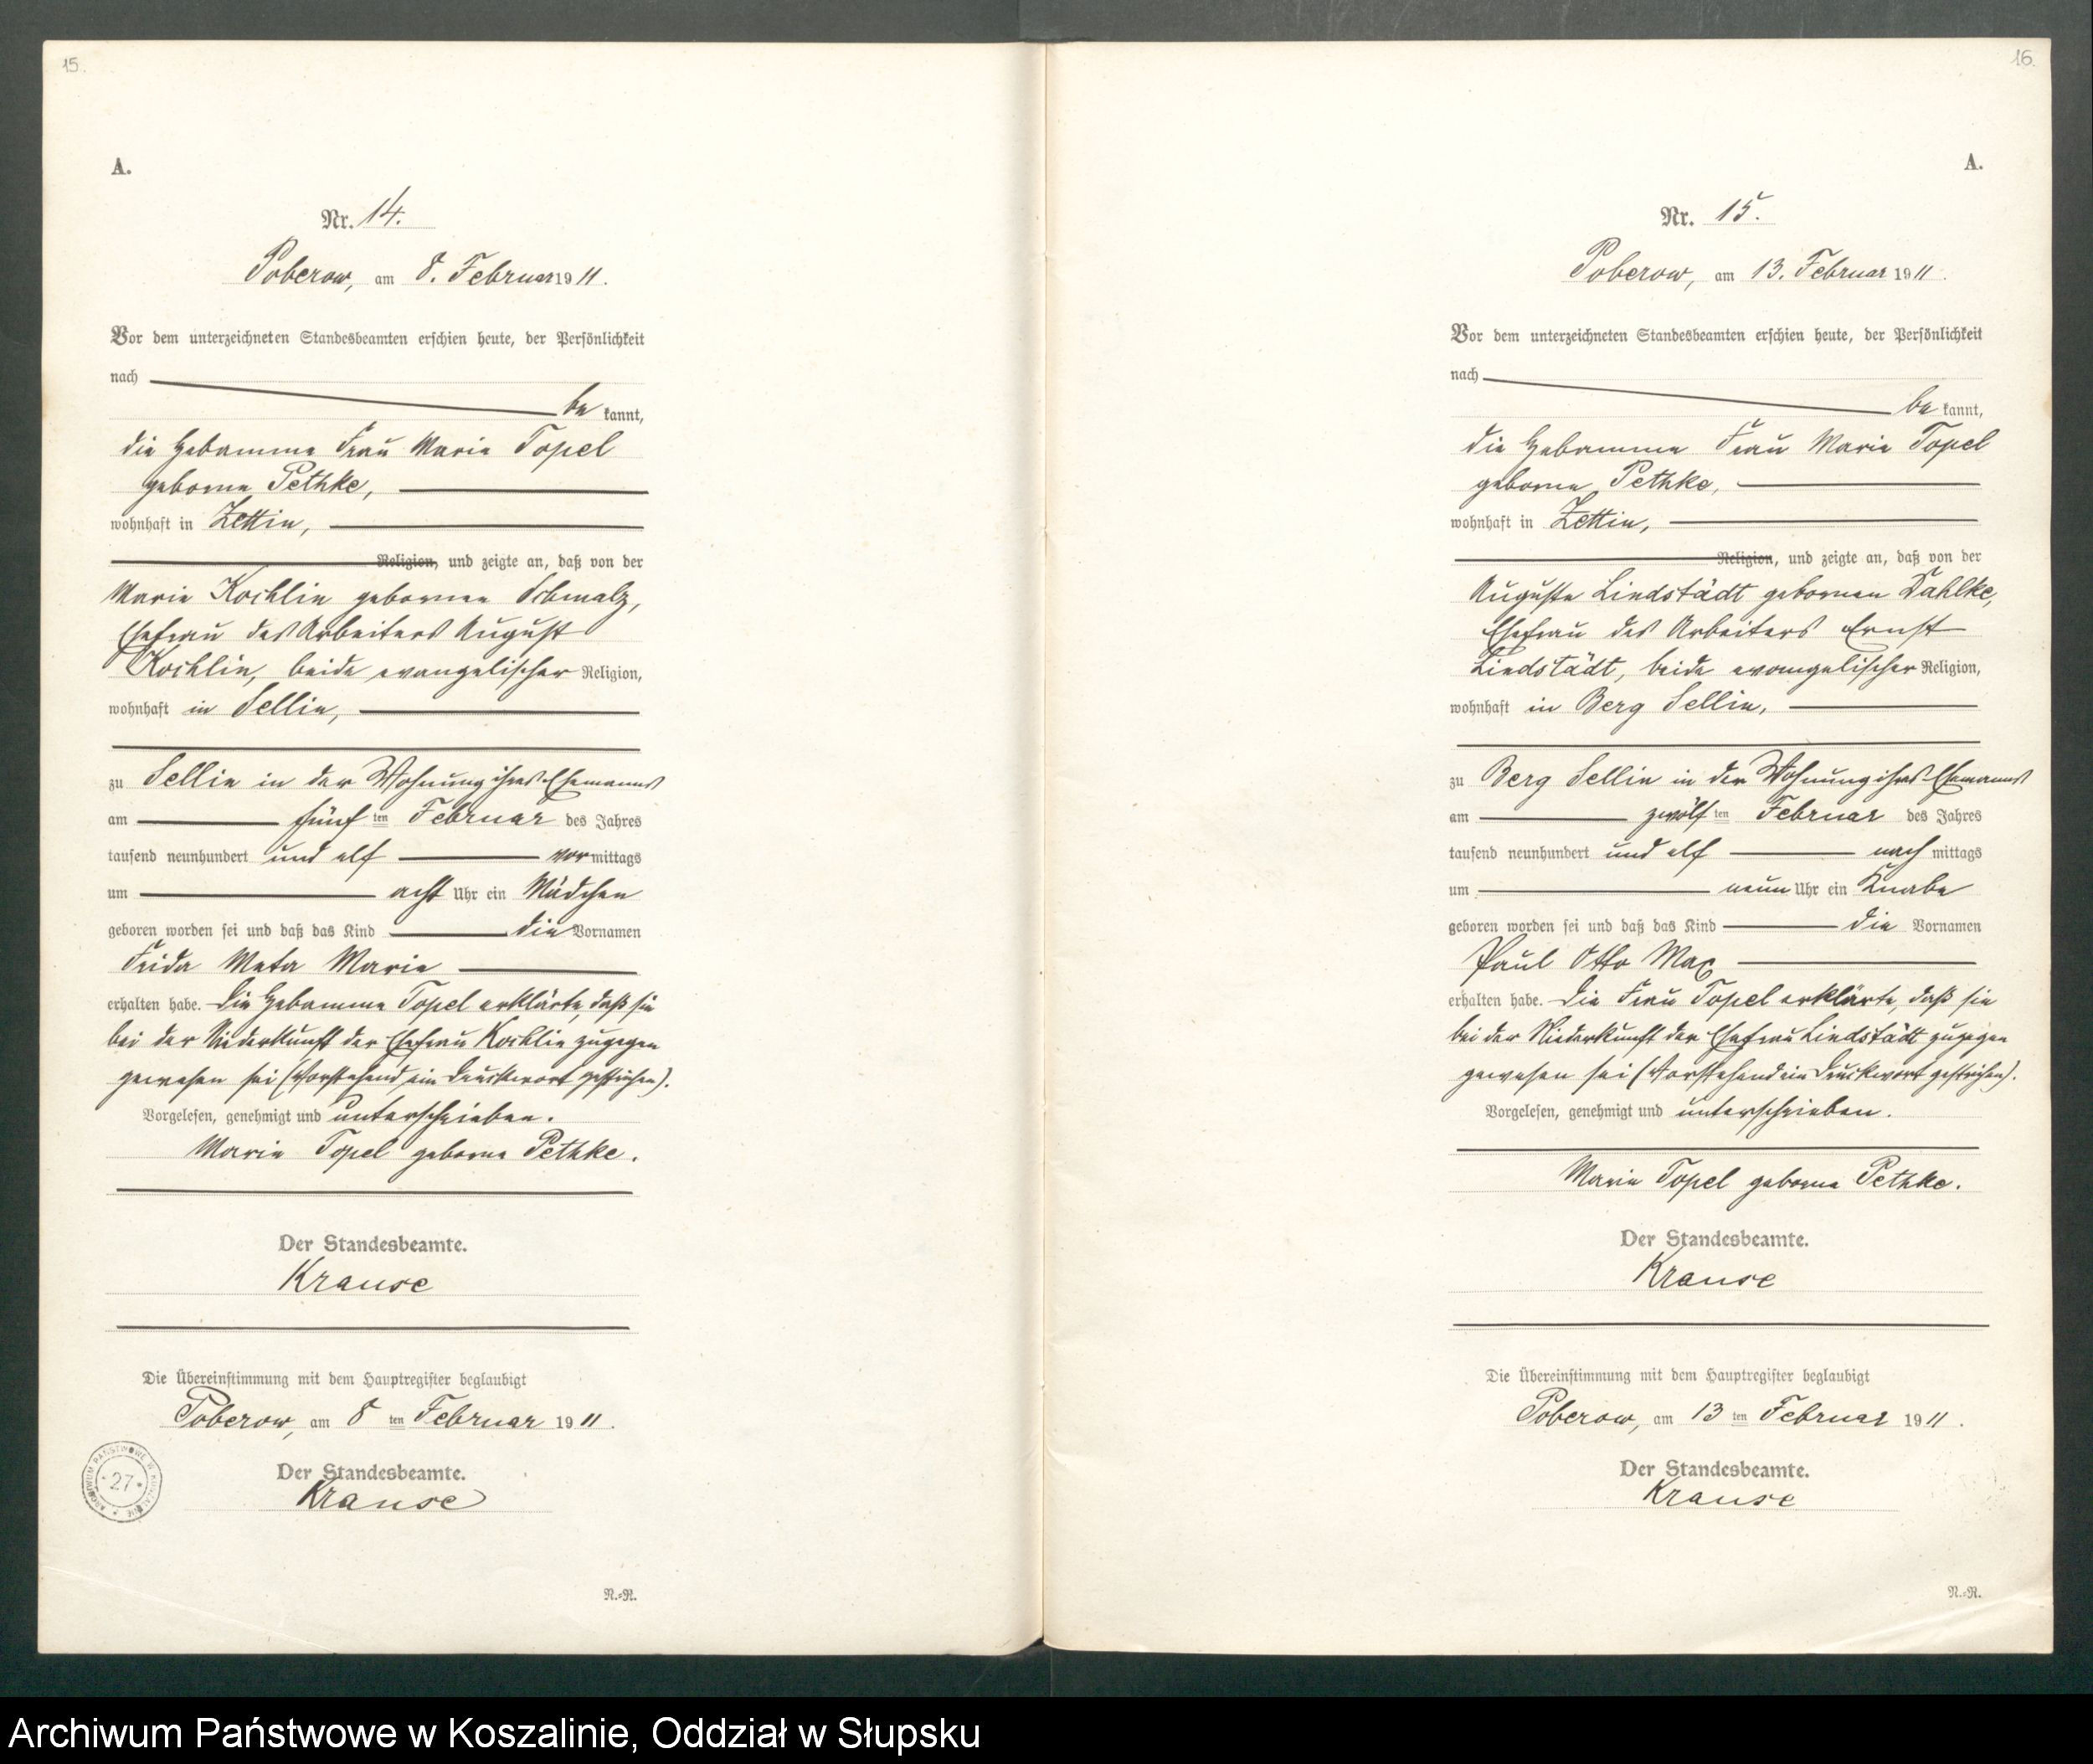 15.
A.
Nr. 14.
Poberow, am 8. Februar 1911.
Vor dem unterzeichneten Standesbeamten erschien heute, der Persönlichkeit
nach
be kannt,
die Hebamme Frau Marie Topel
geborne Pethke,
wohnhaft in Zettin,
Religion, und zeigte an, daß von der
Marie Kochlin gebornen Schmalz,
Ehefrau des Arbeiters August
Kochlin, beide evangelischer Religion,
wohnhaft in Sellin,
zu Sellin in der Wohnung ihres Ehemanns
am fünf ten Februar des Jahres
tausend neunhundert und elf vor mittags
um acht Uhr ein Mädchen
geboren worden sei und daß das Kind die Vornamen
Frida Meta Marie
erhalten habe. Die Hebamme Topel erklärte, daß sie
bei der Niederkunft der Ehefrau Kochlin zugegen
gewesen sei (Vorstehend ein Druckwort gestrichen).
Vorgelesen, genehmigt und unterschrieben.
Marie Topel geborne Pethke.
Der Standesbeamte.
Krause
Die Übereinstimmung mit dem Hauptregister beglaubigt
Poberow, am 8 ten Februar 1911.
Der Standesbeamte.
Krause
ARCHIWUM PAŃSTWOWE W KOSZALINIE
27
N.=R.
16.
A.
Nr. 15.
Poberow, am 13. Februar 1911.
Vor dem unterzeichneten Standesbeamten erschien heute, der Persönlichkeit
nach
be kannt,
die Hebamme Frau Marie Topel
geborne Pethke,
wohnhaft in Zettin,
Religion, und zeigte an, daß von der
Auguste Lindstädt gebornen Dahlke,
Ehefrau des Arbeiters Ernst
Lindstädt, beide evangelischer Religion,
wohnhaft in Berg Sellin,
zu Berg Sellin in der Wohnung ihres Ehemanns
am zwölf ten Februar des Jahres
tausend neunhundert und elf nach mittags
um neun Uhr ein Knabe
geboren worden sei und daß das Kind die Vornamen
Paul Otto Max
erhalten habe. Die Frau Topel erklärte, daß sie
bei der Niederkunft der Ehefrau Lindstädt zugegen
gewesen sei (Vorstehend ein Druckwort gestrichen).
Vorgelesen, genehmigt und unterschrieben.
Marie Topel geborne Pethke.
Der Standesbeamte.
Krause
Die Übereinstimmung mit dem Hauptregister beglaubigt
Poberow, am 13 ten Februar 1911.
Der Standesbeamte.
Krause
N.=R.
Archiwum Państwowe w Koszalinie, Oddział w Słupsku